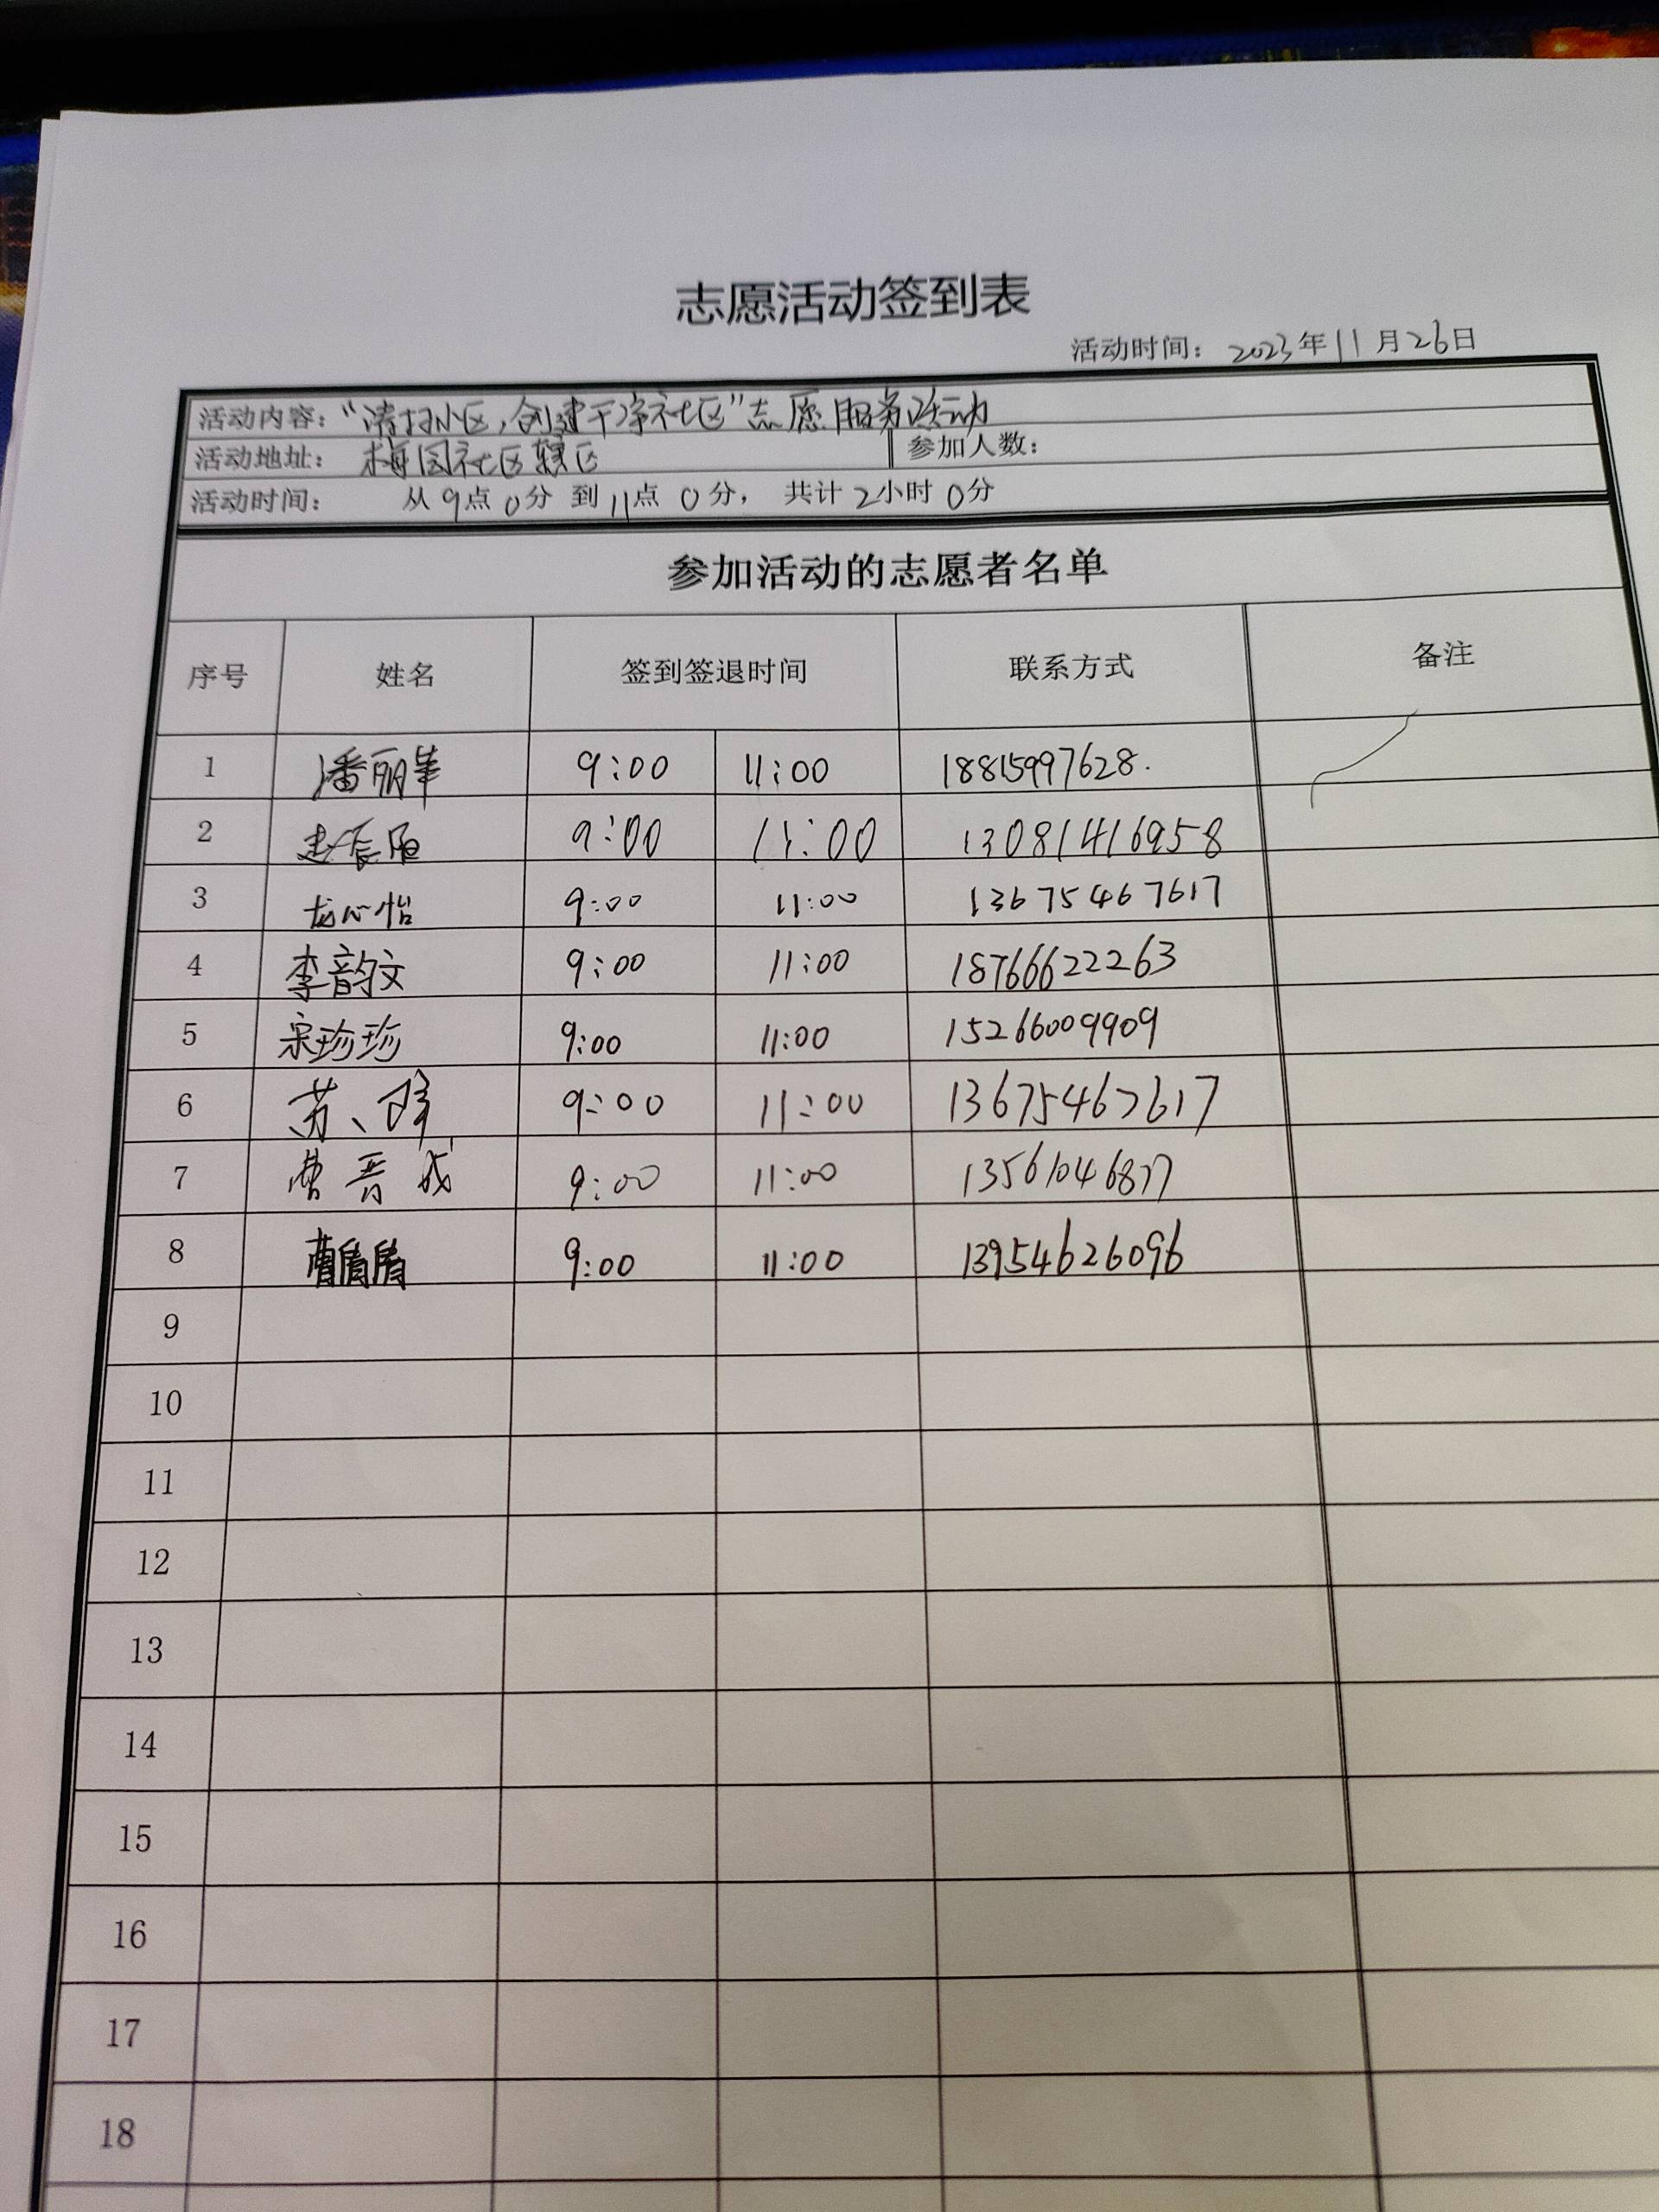 志愿活动签到表
活动时间: 2023年11月26日
活动内容:“清扫小区,创建干净社区”志愿服务活动
活动地址: 梅园社区辖区 参加人数:
活动时间: 从9点0分到11点0分, 共计2小时0分
参加活动的志愿者名单
序号 姓名 签到签退时间 联系方式 备注
1 潘丽 9:00 11:00 18815997628.
2 9:00 11:00 13081416958
3 龙心怡 9:00 11:00 13675467617
4 李韵文 9:00 11:00 18766622263
5 宋珍珍 9:00 11:00 15266009909
6 9:00 11:00 13675467617
7 9:00 11:00 13561046877
8 9:00 11:00 13954626096
9
10
11
12
13
14
15
16
17
18